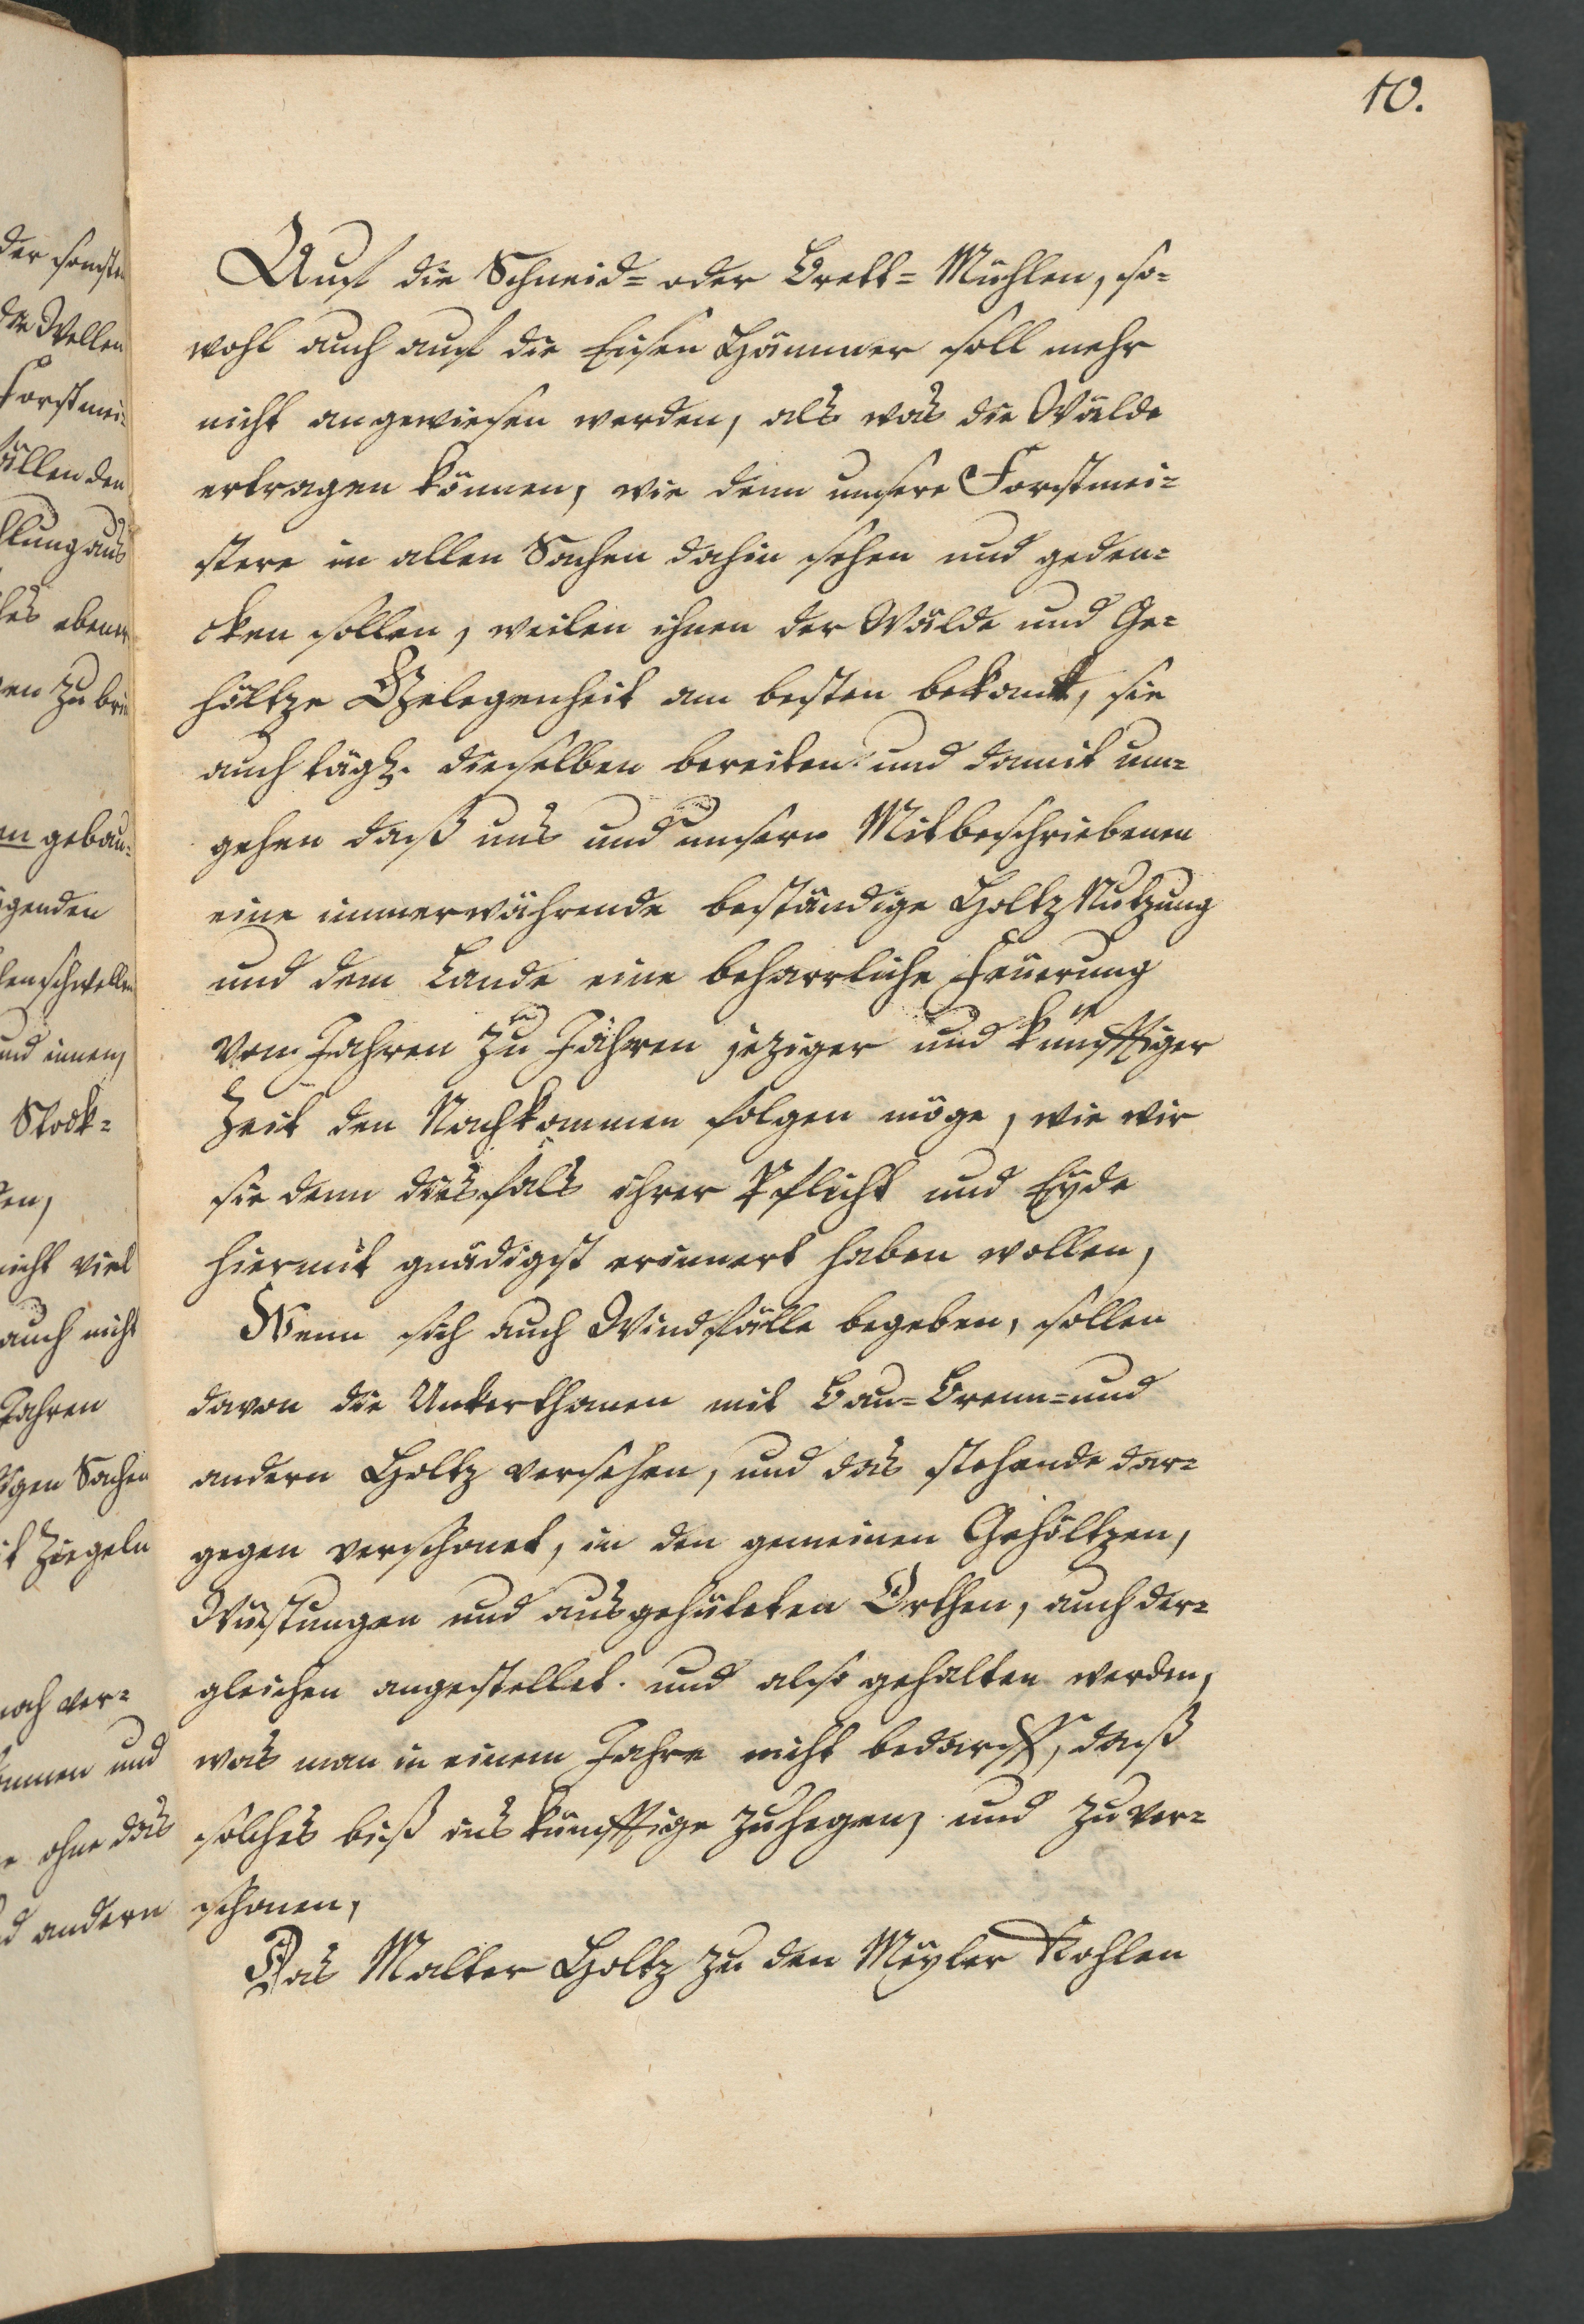 10.
Auf die Schneid= oder Brett=Mühlen, so=
wohl auch auf die Eisen Hämmer soll mehr
nicht angewiesen werden, als was die Wälde
ertragen können, wie denn unsere Forstmei=
stere in allen Sachen dahin sehen und geden=
cken sollen, weilen ihnen der Wälde und Ge=
höltze Gelegenheit am besten bekant, sie
auch tägl. dieselben bereiten und damit um=
gehen daß uns und unsern Mitbeschriebenen
eine immerwährende beständige Holtz Nutzung
und dem Lande eine beharrliche Feuerung
von Jahren zu Jahren jeziger und künfftiger
Zeit den Nachkommen folgen möge, wie wir
sie denn diesfals ihrer Pflicht und Eyde
hiermit gnädigst erinnert haben wollen,
Wenn sich auch Windfälle begeben, sollen
davon die Unterthanen mit Bau=Brenn=und
andern Holtz versehen, und das stehende dar=
gegen verschonet, in den gemeinen Gehöltzen,
Wüstungen und ausgehüteten Orthen, auch der=
gleichen angestellet. und also gehalten werden,
was man in einem Jahre nicht bedarff, daß
solches biß ins künfftige zuhegen, und zu ver=
schonen,
Das Malter Holtz zu den Meyler Kohlen
der sonsten
die Wellen
Forstmei=
fällen den
aus
eben
zu
gebau=
schwellen
und innen,
Stock=
nicht viel
auch nicht
Jahren
Sachen
Ziegeln
noch ver=
und
ohne das
andern